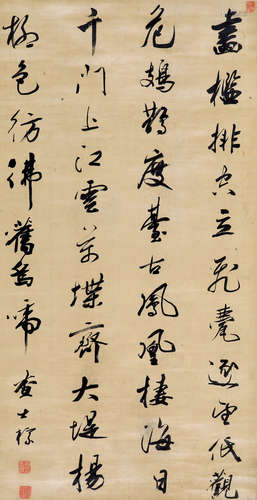 畫檻排空立飛甍逐望低觀
危鳷鵲度臺古鳳凰棲海日
千門上江雲萬堞齊大堤楊
柳色彷佛舊烏啼 查士標